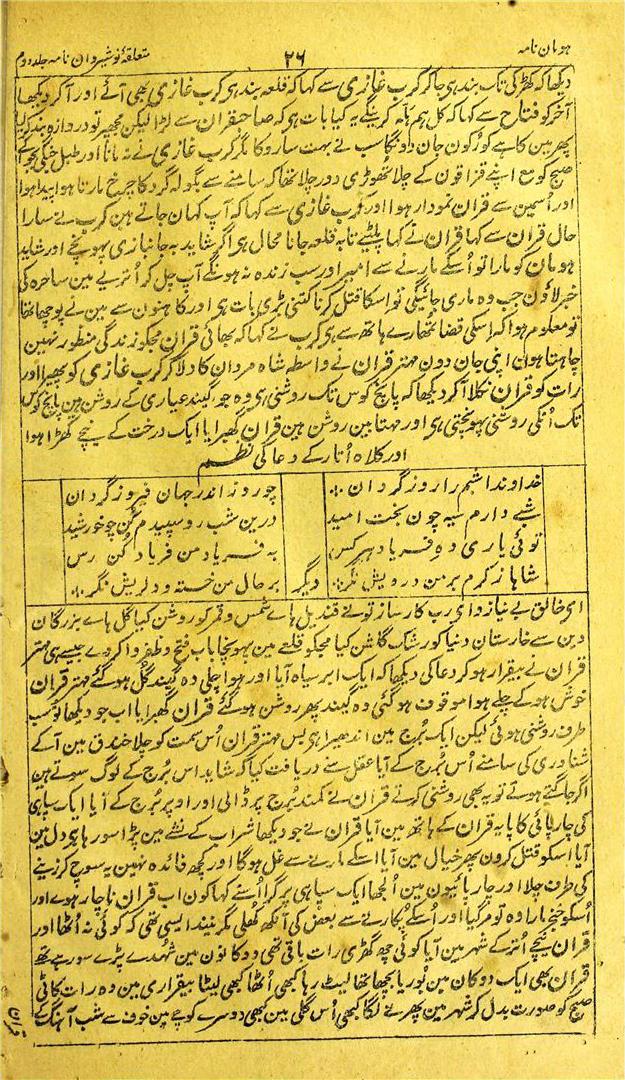 ہومان نامہ
۲۶
متعلقۂ نوشیروان نامہ جلد دوم
دیکھا کہ کھڑکی تک بند ہی جا کر کرب غازی سے کہا کہ قلعہ بند ہی کرب غازی بھی آئے اور آ کر دیکھا
آخر کو فتاح سے کہا کہ کل ہم ہلہ کرینگے یہ کیا بات ہی کہ صاحبقران سے لڑا لیکن مجھپر تو دروازہ بند کر لیا
پھر مین کاہے کو رکون جان دونگا سب نے بہت سا روکا مگر کرب غازی نے نہ مانا اور طبل جنگی بجوا کے
صبح کو مع اپنے قزاقون کے چلا تھوڑی دور چلا تھا کہ سامنے سے بگولہ گرد کا چرخ مارتا ہوا پیدا ہوا
اور اُسمین سے قران نمودار ہوا اور کرب غازی سے کہا کہ آپ کہان جاتے ہین کرب نے سارا
حال قران سے کہا قران نے کہا پلٹیے تا بہ قلعہ جانا محال ہی اگر شاید بہ جانبازی پہونچے اور شاید
ہومان کو مارا تو اُسکے مارنے سے امیر اور سب زندہ نہ ہونگے آپ چل کر اُتریے مین ساحرہ کی
خبر لاؤن جب وہ ماری جائیگی تو اسکا قتل کرنا کتنی بڑی بات ہی اور کاہنون سے مین نے پوچھا تھا
تو معلوم ہوا کہ اسکی قضا تمھارے ہاتھ سے ہی کرب نے کہا کہ بھائی قران مجکو زندگی منظور نہین
چاہتا ہون اپنی جان دون مہتر قران نے واسطہ شاہ مردان کا دلا کر کرب غازی کو پھیرا اور
رات کو قران نکلا آ کر دیکھا کہ پانچ کوس تک روشنی ہی وہ جو گیند عیاری کے روشن ہین پانچ کوس
تک اُنکی روشنی پہونچتی ہی اور مہتابین روشن ہین قران گھبرایا ایک درخت کے نیچے کھڑا ہوا
اور کلاہ اُتار کے دعا کی نظم
خداوندا شبم را روز گردان
چو روز اندر جہان فیروز گردان
شبے دارم سیہ چون بخت امید
درین شب رو سپیدم کن چو خورشید
توئی یاری دہ فریاد ہر کس
بہ فریاد من فریاد کُن رس
دیگر
شاہا ز کرم بر من درویش نگر
بر حال من خستہ و دلریش نگر
ای خالق بے نیاز و ای رب کارساز تو نے قندیل ہاے شمس و قمر کو روشن کیا گل ہاے بزرگان
دین سے خارستان دنیا کو رشک گلشن کیا مجکو قلعے مین پہونچا باب فتح و ظفر وا کر دے جیسے ہی مہتر
قران نے بیقرار ہو کر دعا کی دیکھا کہ ایک ابر سیاہ آیا اور ہوا چلی وہ گیند گل ہو گئے مہتر قران
خوش ہو کے چلے ہوا موقوف ہو گئی وہ گیند پھر روشن ہو گئے قران گھبرایا اب جو دیکھا تو سب
طرف روشنی ہوئی لیکن ایک بُرج مین اندھیرا ہی بس مہتر قران اُس سمت کو چلا خندق مین آ کے
شناوری کی سامنے اُس بُرج کے آیا عقل سے دریافت کیا کہ شاید اس بُرج کے لوگ سوتے ہین
اگر جاگتے ہوتے تو یہ بھی روشنی کرتے قران نے کمند بُرج پر ڈالی اور اوپر بُرج کے آیا ایک سپاہی
کی چارپائی کا پایہ قران کے ہاتھ مین آیا قران نے جو دیکھا شراب کے نشے مین پڑا سو رہا ہی دل مین
آیا اسکو قتل کرون پھر خیال مین آیا اسکے مارنے سے غل ہو گا اور کچھ فائدہ نہین یہ سوچ کر زینے
کی طرف چلا اور چارپائیون مین اُلجھا ایک سپاہی پر گرا اُسنے کہا کون اب قران ناچار ہوے اور
اُسکو خنجر مارا وہ تو مر گیا اور اُسکے پکارنے سے بعض کی آنکھ کھلی مگر نیند ایسی تھی کہ کوئی نہ اُٹھا اور
قران نیچے اُتر کے شہر مین آیا کوئی چھ گھڑی رات باقی تھی دوکانون مین شہدے پڑے سو رہے تھے
قران بھی ایک دوکان مین بوریا بچھا تھا لیٹ رہا کبھی اُٹھا کبھی لیٹا بیقراری مین وہ رات کاٹی
صبح کو صورت بدل کر شہر مین پھرنے لگا کبھی اُس گلی مین کبھی دوسرے کوچے مین خوف سے شب آہنگ کے
قران